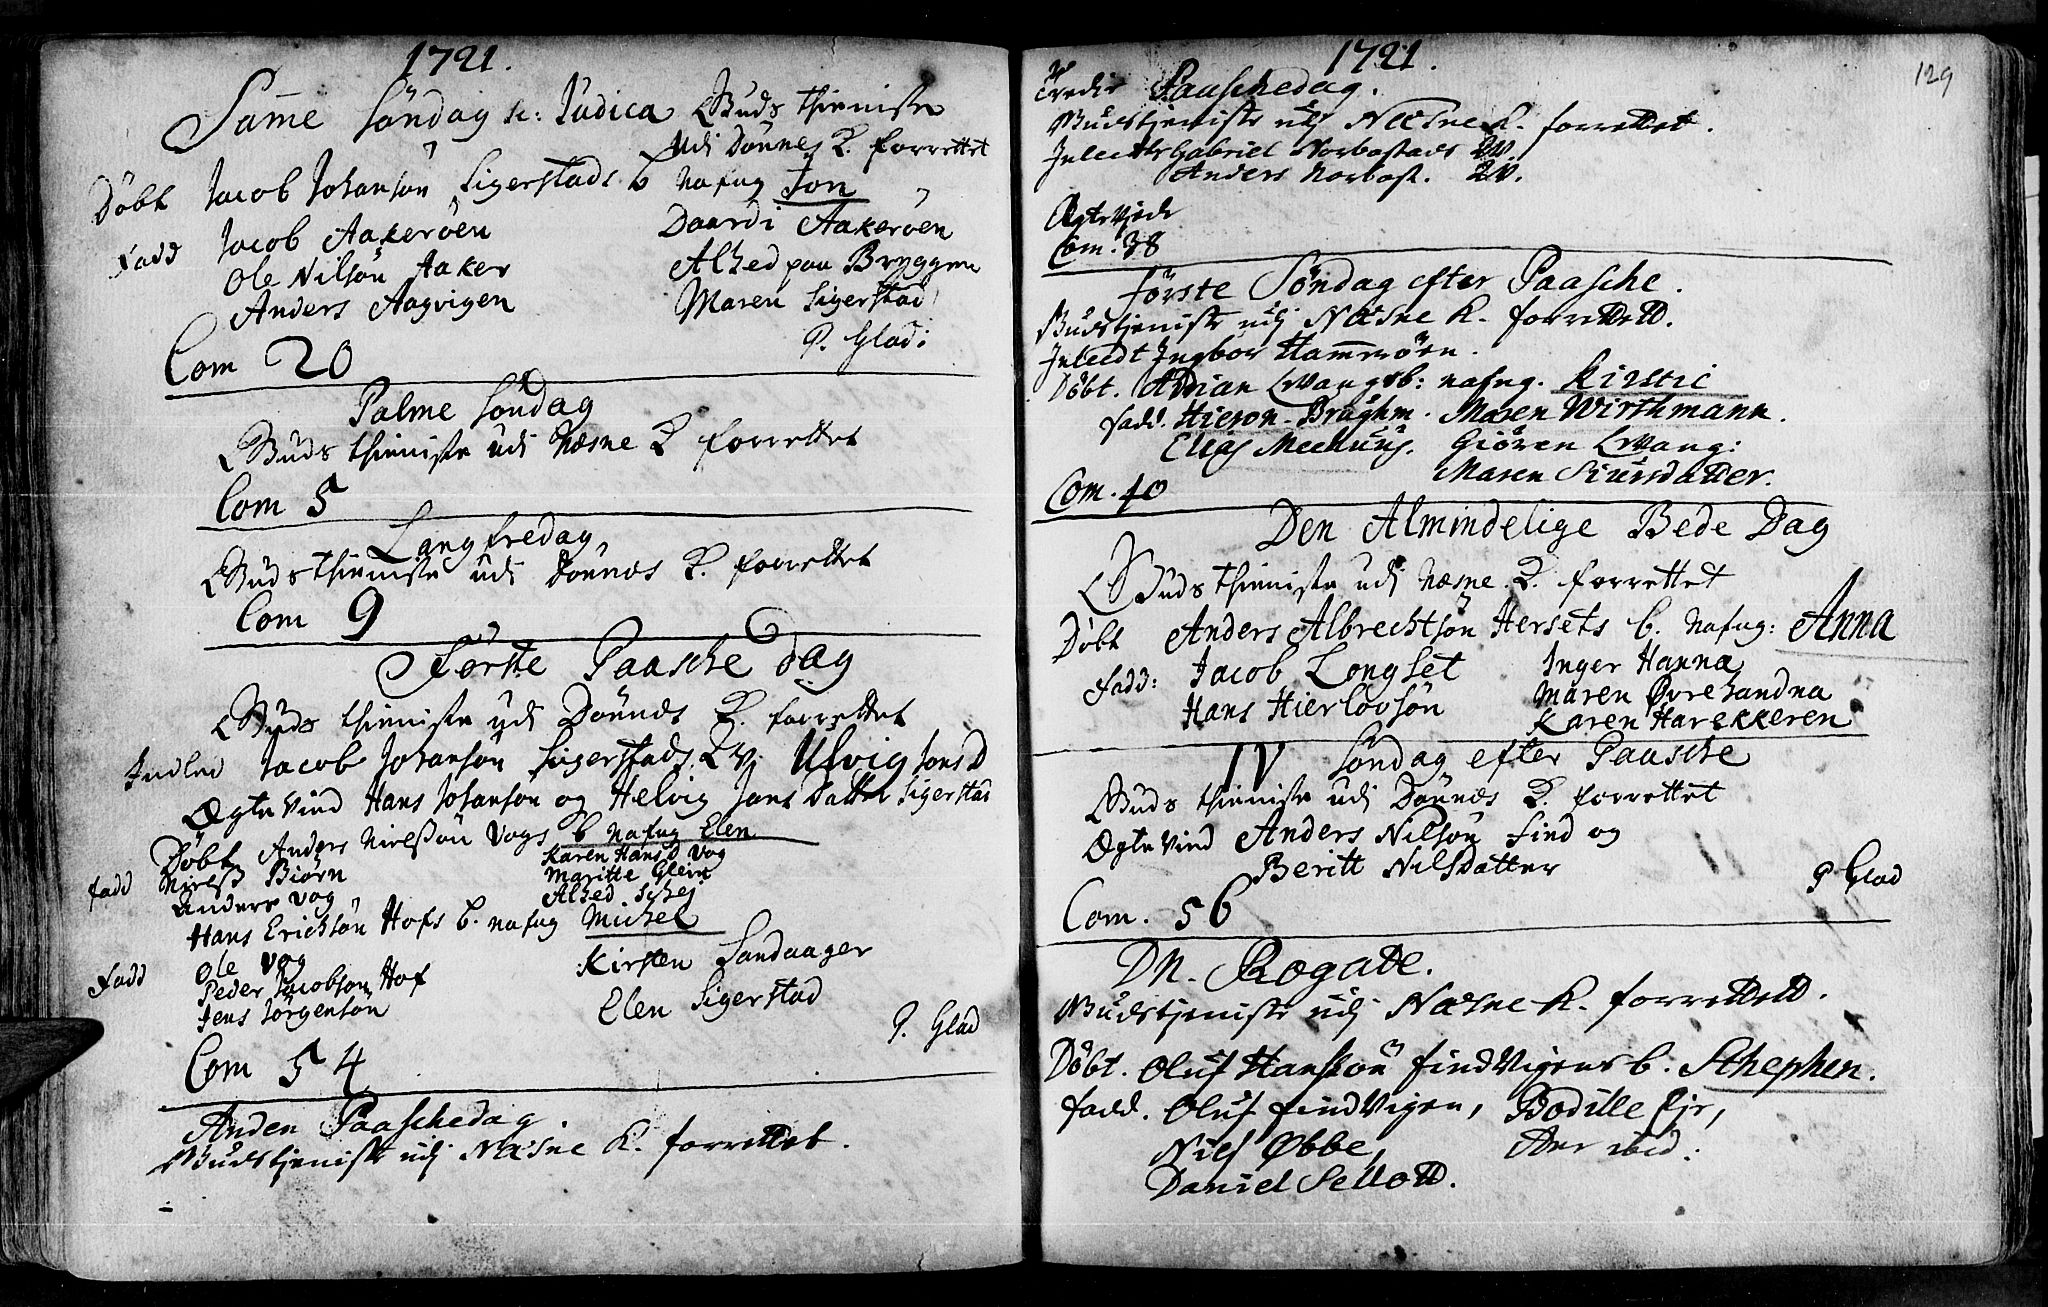 1721.
Same Söndag sc: Judica Guds thieniste
udi Dönnes K. forrettet
Döbt Jacob Johansön Sigerstads b nafng Jon
Fadd Jacob Aakeröen Daardi Aakeröen
Ole Nilsön Aaker Alhed paa Bryggen
Anders Aagvigen Maren Sigerstad
P. Glad:
Com 20
Palme Söndag
Guds thieniste udi Næsne K forrettet
Com 5
Langfredag
Guds thieniste udi Dönnes K. forrettet
Com 9
Förste Paasche dag
Guds thieniste udi Dönnes K. forrettet
Indled Jacob Johansön Sigerstads Qv. Ulvig Jons D
Ægte Vied Hans Johansön og Helvig Jons Datter Sigerstad
Döbt Anders Nielssön Vogs b nafng Elen
Fadd Nielss Biörn Karen Hans D Vog
Anders Vog Maritte Glein
Alhed Schej
Hans Erichsön Hofs b. nafng Michel
Fadd Ole Vog Kirsten Sandaager
Peder Jacobsön Hof
Jens Jörgensön Elen Sigerstad
P. Glad
Com 54
Anden Paaschedag.
Gudstjeniste udj Næsne K. forrettet.
1721.
129
Tredie Paaschedag.
Gudstjeniste udj Næsne K. forrettet.
Inledte Gabriel Norbostads Qv.
Anders Norbost. Qv.
Ægteviede
Com. 38
Förste Söndag efter Paasche.
Gudstjeniste udj Næsne K. forrettett.
Inledt Ingbor Hammeröen.
Döbt. Adrian Qvangs b: nafng. Kirstic
Fadd. Hieron. Brughm. Maren Wirthmann.
Elias Meehuus. Giören Qvang:
Maren Siursdatter.
Com. 10
Den Almindelige Bede Dag
Guds thieniste udi Næsne K. forrettet
Döbt Anders Albrechtsön Hersets b. Nafng: Anna
Fadd: Jacob Longset Inger Hanna
Hans Hierlovsön Maren Øvre Sandna
Karen Harekkeren
IV Söndag efter Paasche
Guds thieniste udi Dönnes K. forrettet
Ægte Vied Anders Nilsön Find og
Beritt Nilsdatter
P Glad
Com. 56
Dn. Rogate.
Gudstjeniste udj Næsne K. forrettett.
Döbt. Oluf Hanssön Findvigens b. Sthephen.
Fadd. Oluf Findvigen, Bodille Ejr,
Niels Øbbe,
Daniel Selvott.